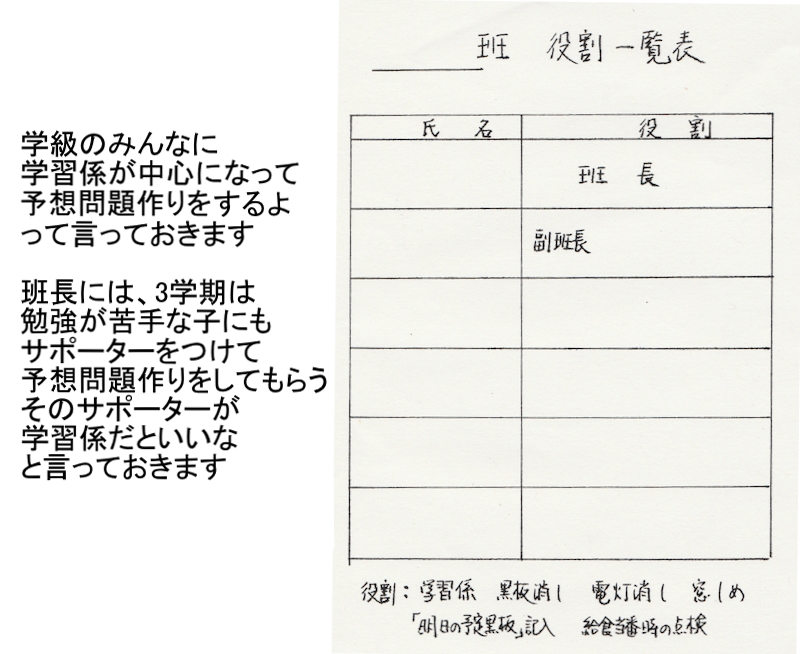 学級のみんなに
学習係が中心になって
予想問題作りをするよ
って言っておきます
班長には、3学期は
勉強が苦手な子にも
サポーターをつけて
予想問題作りをしてもらう
そのサポーターが
学習係だといいな
と言っておきます
班 役割一覧表
氏 名 役 割
班 長
副班長
役割：学習係 黒板消し 電灯消し 窓しめ
「明日の予定黒板」記入 給食当番時の点検